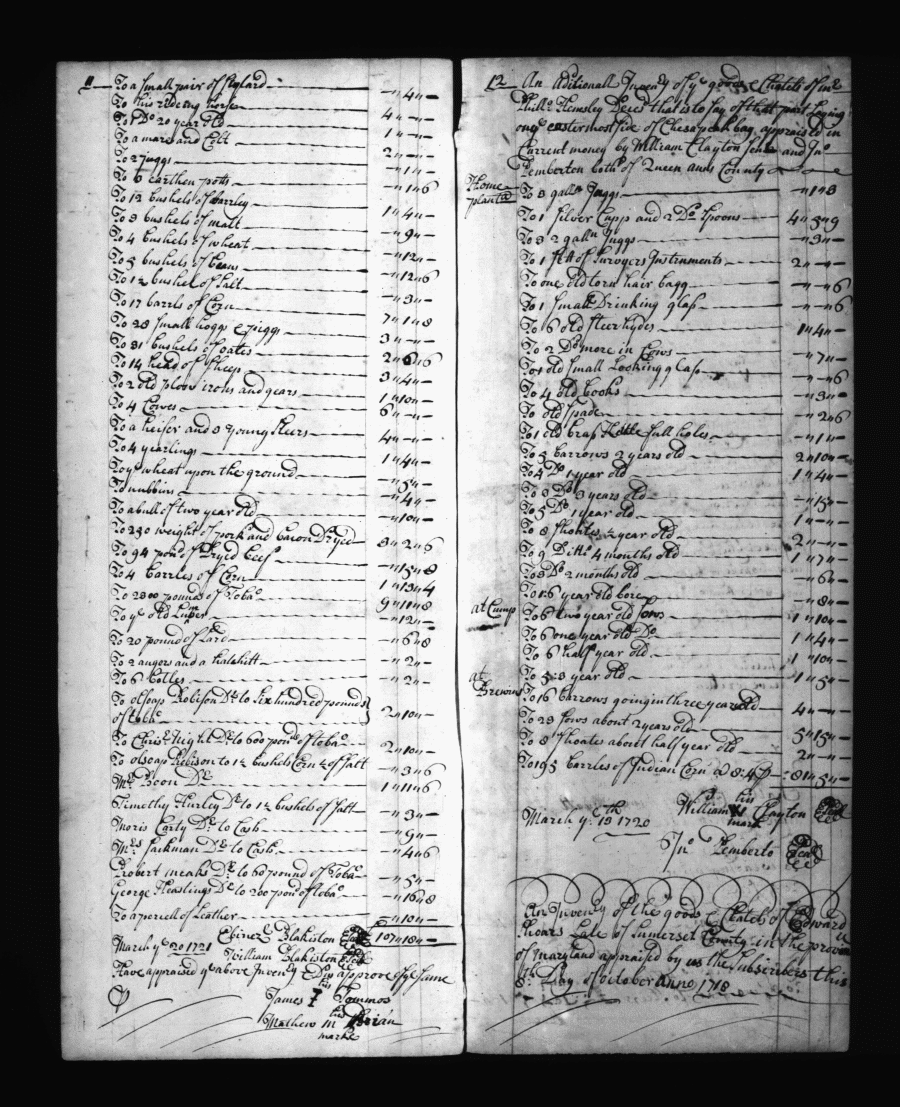 11
To a small pair of
To his rideing horse "4"-
To 1 Do 20 year old 4"-"-
To a mare and Colt 1"-"-
To 2 Juggs 2"-"-
To 6 earthen potts -"1"-
To 12 bushels of barley -"1"6
To 3 bushels of malt 1"4"-
To 4 bushels of wheat -"9"-
To 5 bushels of beans -"12"-
To 1½ bushel of Salt -"12"6
To 17 barrls of Corn -"3"-
To 28 Small hoggs & piggs 7"1"8
To 31 bushels of oates 3"-"-
To 14 head of Sheep 2"6"6
To 2 old plow irons and gears 3"4"-
To 4 Cowes 1"10"-
To a heifer and 3 young Steers 6"-"-
To 4 yearlings 4"-"-
To ye wheat upon the ground 1"4"-
To nubbins -"5"-
To a bull of two year old -"4"-
To 230 weight of pork and bacon Dryed -"10"-
To 94 pond of Dryed beef 3"2"6
To 4 barrles of Corn -"15"8
To 2300 pounds of Tobao 1"13"4
To ye old Lumr 9"11"8
-"12"-
To 20 pound of Lard -"6"8
To 2 augors and a -"2"-
To 6 botles -"2"-
To Robison Dr to Six hundred pounds
of tobao 2"10"-
To Chrisr Dr to 600 pond of tobao
To Robison to 1½ bushels Corn ½ of Salt 2"10"-
Mr Boon Dr -"3"6
Timothy Hurley Dr to 1½ bushels of Salt 1"1"6
Moris Carty Dr to Cash -"3"-
Mrs Jackman Dr to Cash -"9"-
Robert meaks Dr to 60 pound of Tobao -"4"6
George Heastings Dr to 200 pond of tobao -"5"-
To a parcell of Leather -"16"8
-"10"-
Ebinezr Blakiston 107"18"-
March ye 20 1721 William Blakiston
Have appraised ye above Inventy approve of ye Same
his
James T Tommos
his
Mathew m
marke
12 An Aditionall Inventy of ye goods & Chatels of mr
Phillo Hemsley Deced that is to Say of that part Laying
on ye eastermost side of Chesapeak bay appraised in
Current money by William Clayton and Jno
Pemberton both of Queen anns County
Home
plantn
To 3 galln Juggs -"1"8
To 1 Silver Cupp and 2 Do Spoons 4"5"9
To 3 2 galln Juggs -"3"-
To 1 Sett of Survyers Instruments 2"-"-
To one old torn hair bagg -"-"6
To 1 Small Drinking glass -"-"6
To 6 old Steer hydes 1"4"-
To 2 Do more in Cows -"7"-
To 1 old Small Looking glass -"-"6
To 4 old books -"3"-
To old Spade -"2"6
To 1 old brass Kettle full holes -"1"-
To 5 barrows 2 years old 2"10"-
To 4 Do 1 year old 1"4"-
To 3 Do 3 years old -"15"-
To 5 Do 1 year old 1"-"-
To 8 Shoates ½ year old 2"-"-
To 9 Ditto 4 months old 1"7"-
To 3 Do 2 months old -"6"-
To 1 6 year old bore -"8"-
at Cump
To 6 two year old Sows 1"10"-
To 6 one year old Do 1"4"-
To 6 half year old 1"10"-
at
Browins
To 5: 3 year old 1"5"-
To 16 barrows going in three year old 4"-"-
To 23 Sows about 2 years old 5"15"-
To 8 Shoates about half year old 2"-"-
To 195 barrles of Indian Corn @ 8:4d 81"5"-
his
William Clayton
mark
March ye 13th 1720
Jno Pemberto
An Inventy of the goods & Chatels of Edward
Late of Sumerset County in the provce
of maryland appraised by us the Subscribers this
8th Day of October Anno 1718